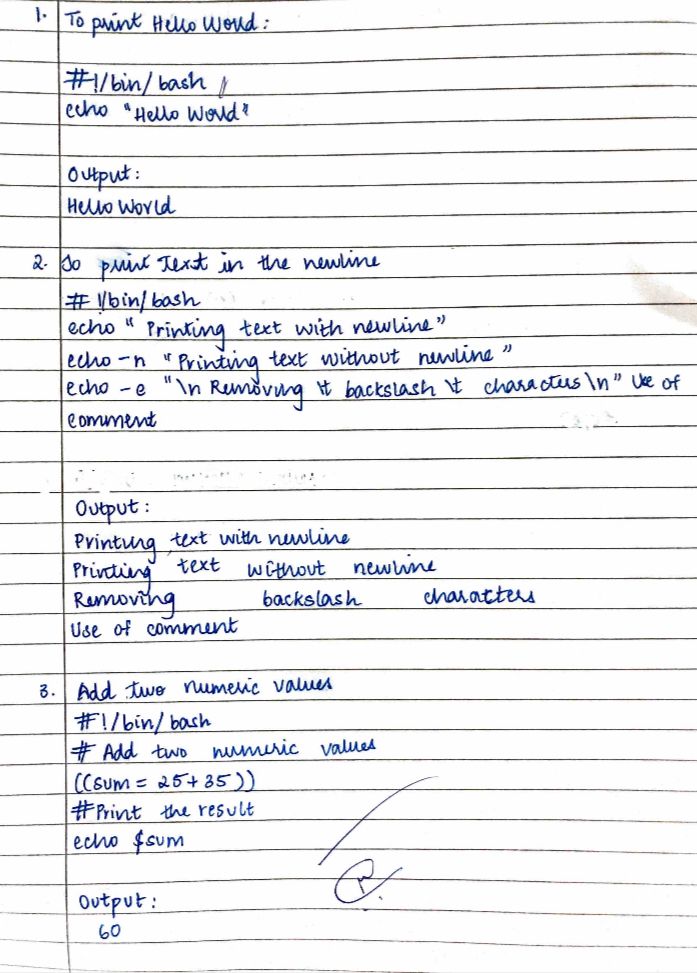 1. To print Hello World:
#!/bin/bash
echo "Hello World"
Output:
Hello World
2. To print Text in the newline
#!/bin/bash
echo " Printing text with newline"
echo -n "Printing text without newline"
echo -e "\n Removing \t backslash \t characters \n" Use of
comment
Output:
Printing text with newline
Printing text without newline
Removing backslash characters
Use of comment
3. Add two numeric values
#!/bin/bash
# Add two numeric values
((sum = 25+35))
#Print the result
echo $sum
Output:
60